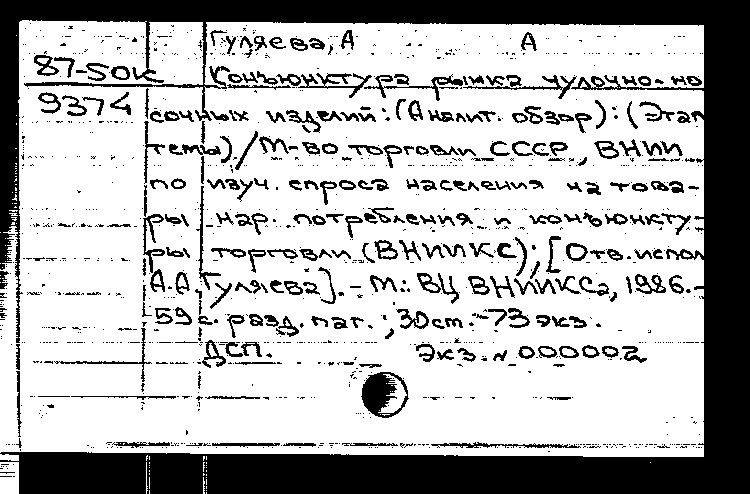 Гуляева, А А
87-50к Конъюнктура рынка чулочно-но
9374 сочных изделий: (Аналит. обзор): (Этап
темы) / М-во торговли СССР, ВНИИ
по изуч. спроса населения на това-
ры нар. потребления и конъюнкту-
ры торговли (ВНИИКС); [Отв. испол
А.А. Гуляева]. - М.: ВЦ ВНИИКСа, 1986. -
59 с. разд. паг.; 30 см. - 73 экз.
ДСП. Экз. № 000002